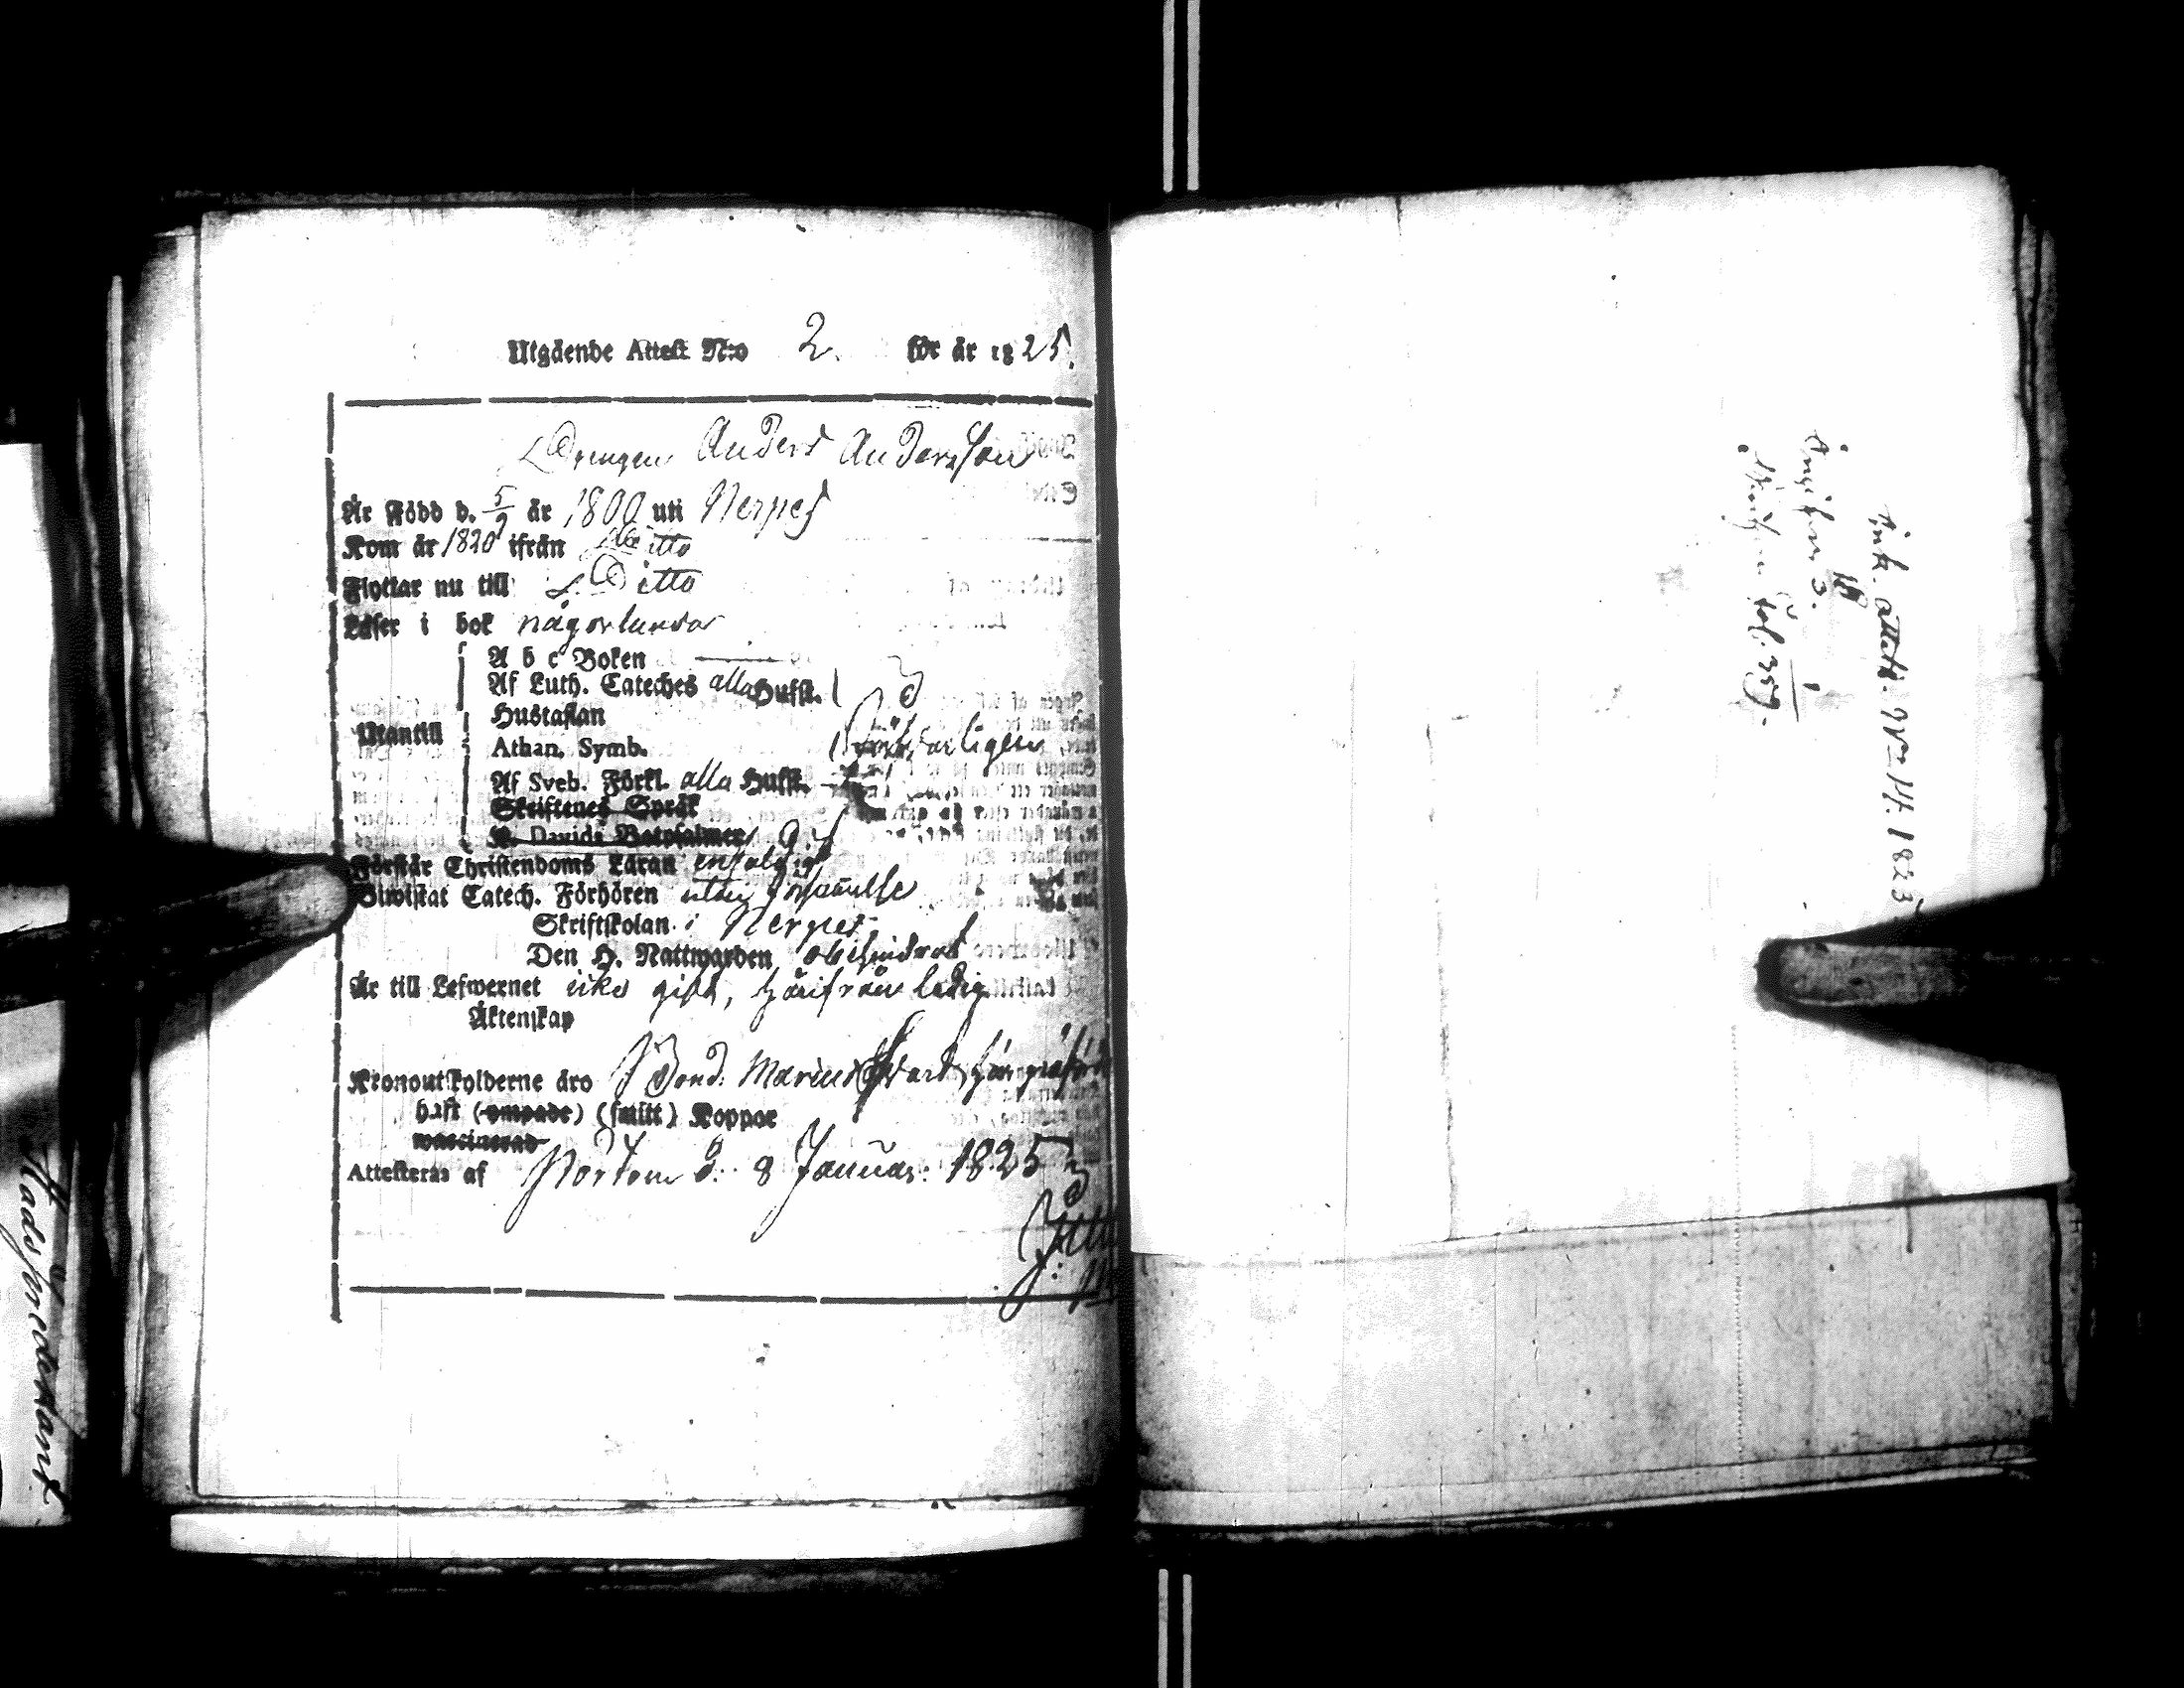 Utgående Attest N:o 2. för år 1825.
Drengen Anders Andersson
Är Född d. 5/9 år 1800 uti Nerpes
Kom år 1820 ifrån Ditto
Flyttar nu till Ditto
Läser i bok någorlunda
A b c Boken
Af Luth. Cateches alla Hufst.
Hustaflan
Utantill
Athan. Symb. försvarligen
Af Sveb. Förkl. alla Hufst.
Skriftenes Språk
K. Davids Botpsalmer
Förstår Christendoms Läran enfaldigt
Biwistat Catech. Förhören utan
Skriftskolan i Nerpes
Den H. Nattwarden obehindrad
Är till Lefwernet icke gift, härifrån ledig
Äktenskap
Kronoutskylderne äro Bond.
haft (ympade) (smitt) Koppor
waccinerad
Attesteras af Pörtom d. 8 Januar: 1825
Ink. attest. N:o 14. 1823
Angifven 3.
fol. 359.